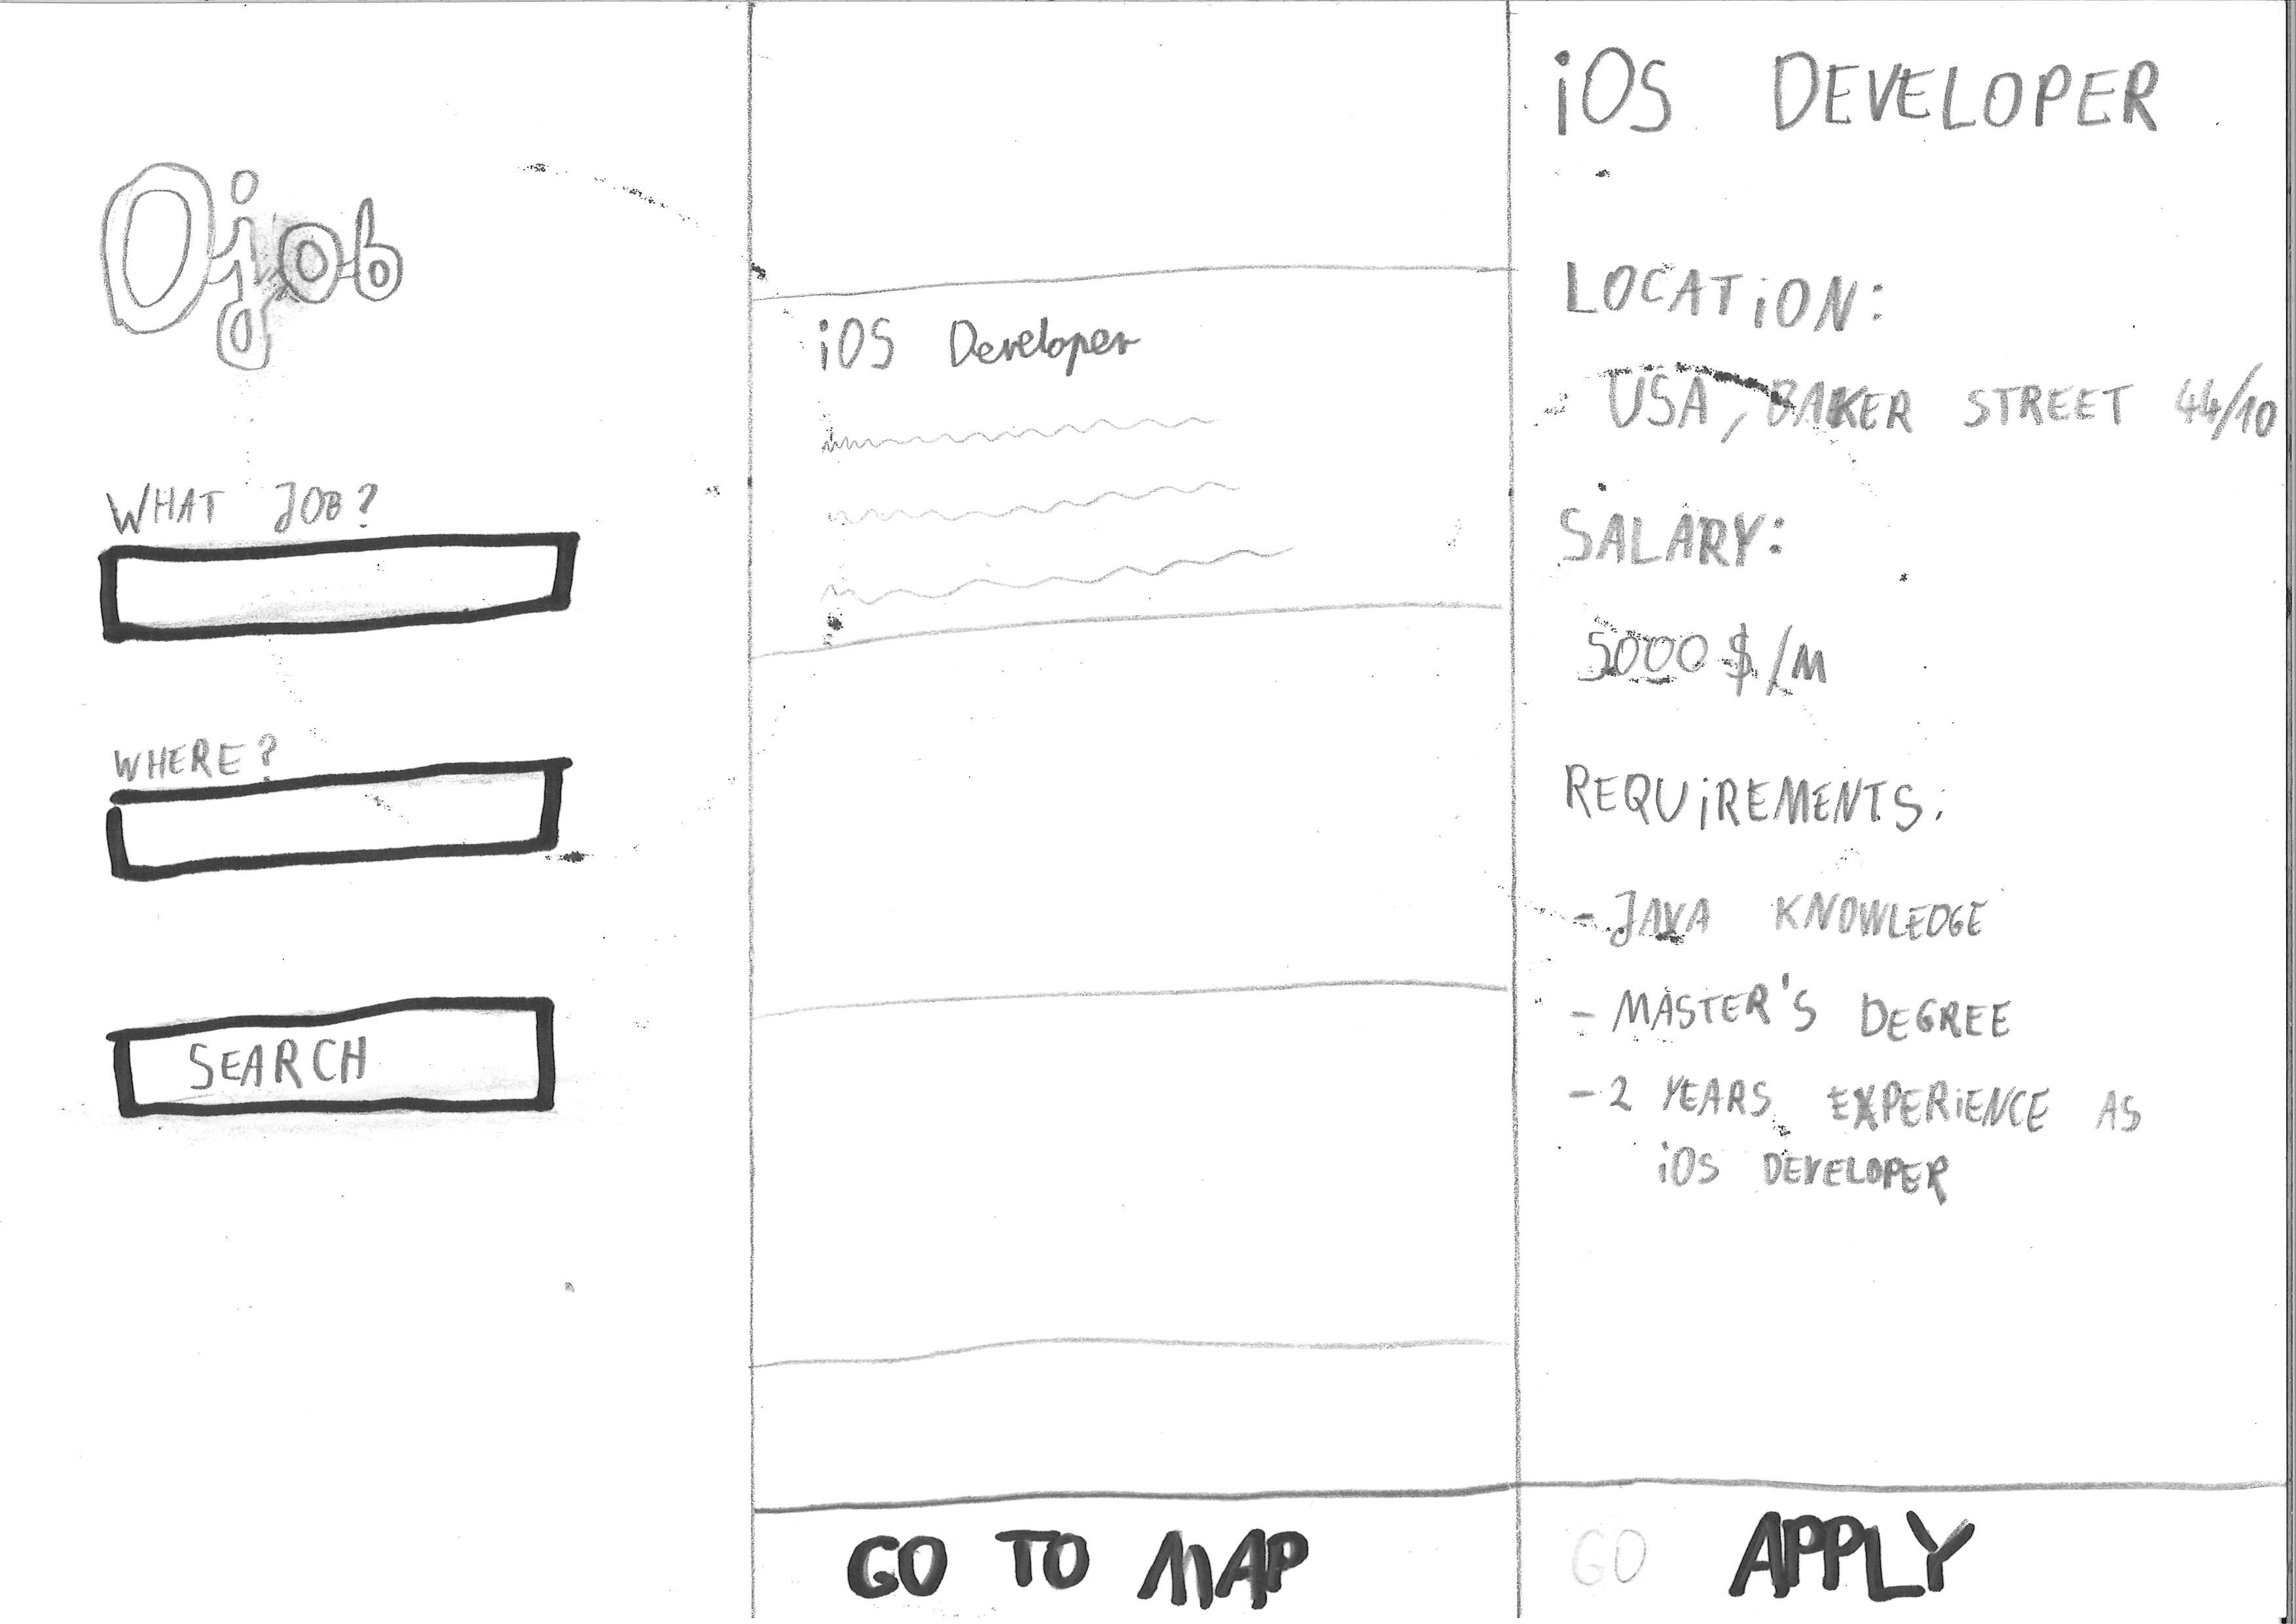 Ojob
WHAT JOB?
WHERE?
SEARCH
iOS Developer
GO TO MAP
iOS DEVELOPER
LOCATION:
USA, BAKER STREET 44/10
SALARY:
5000 $/M
REQUiREMENTS:
- JAVA KNOWLEDGE
- MASTER'S DEGREE
- 2 YEARS EXPERiENCE AS
iOS DEVELOPER
GO APPLY